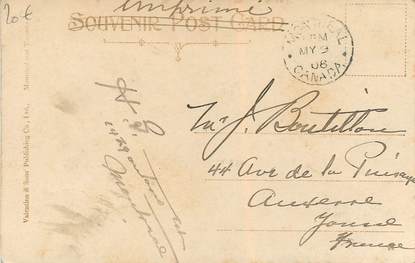 20€
Imprimé
SOUVENIR POST CARD
MONTREAL
PM
MY 9
06
CANADA
Valentine & Sons' Publishing Co., Ltd., Montreal and
Mr J. Boutillon
44 Ave de la Puisaye
Auxerre
Yonne
France
Montreal